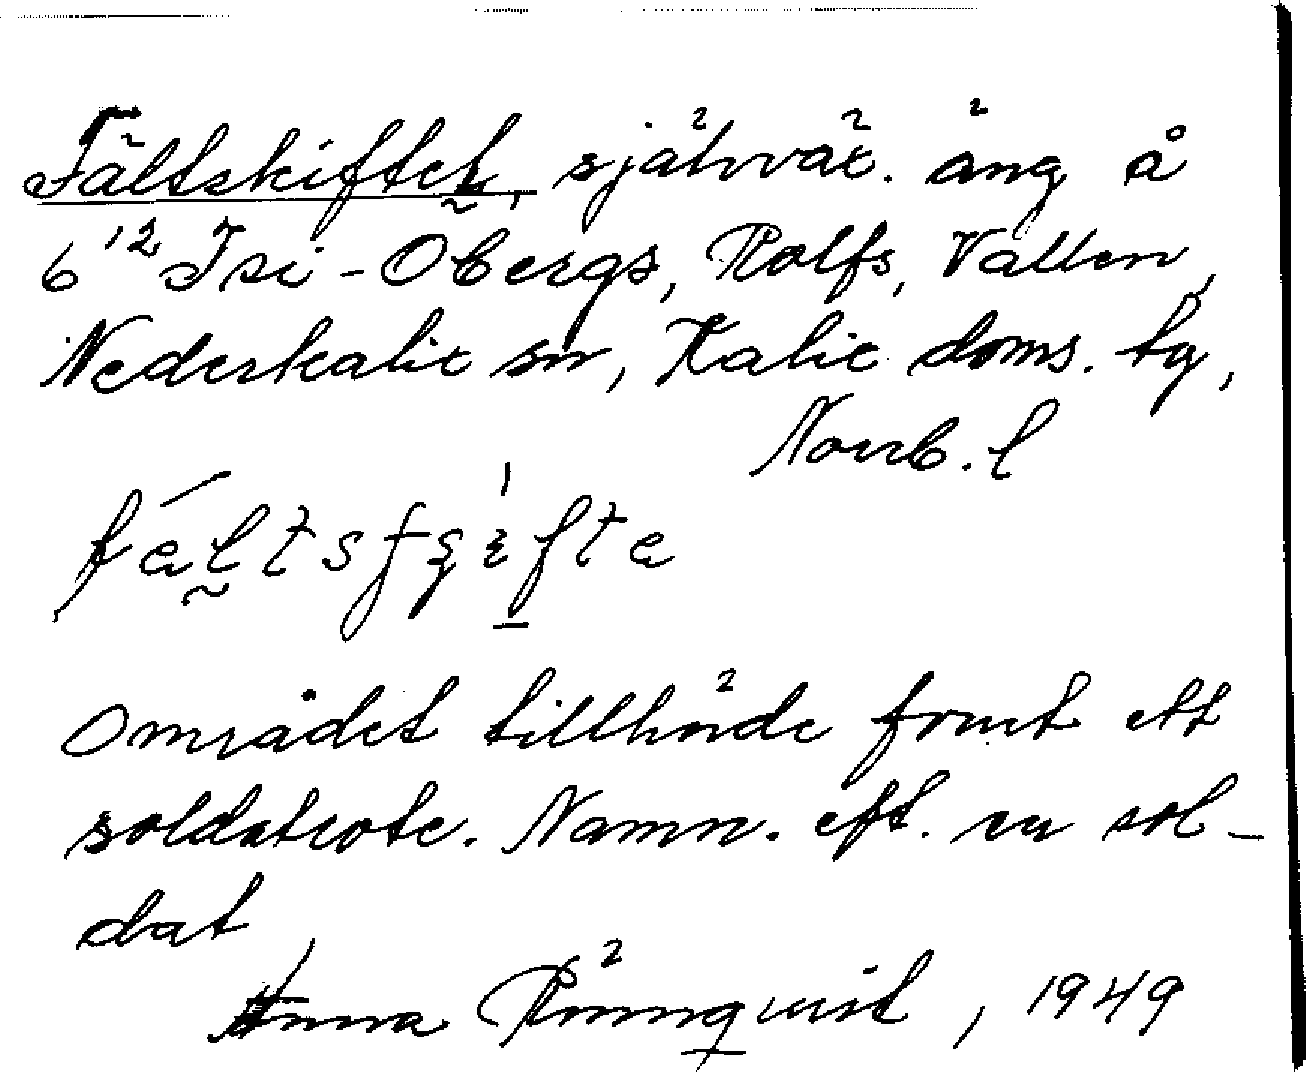 Fältskiftet, självär. äng å
6¹² Isi-Öbergs, Rolfs, Vallen,
Nederkalix sn, Kalix doms. tg,
Norrb. l
Området tillhörde förut ett
soldatrote. Namn. eft. en sol-
dat
Anna Rönnqvist, 1949